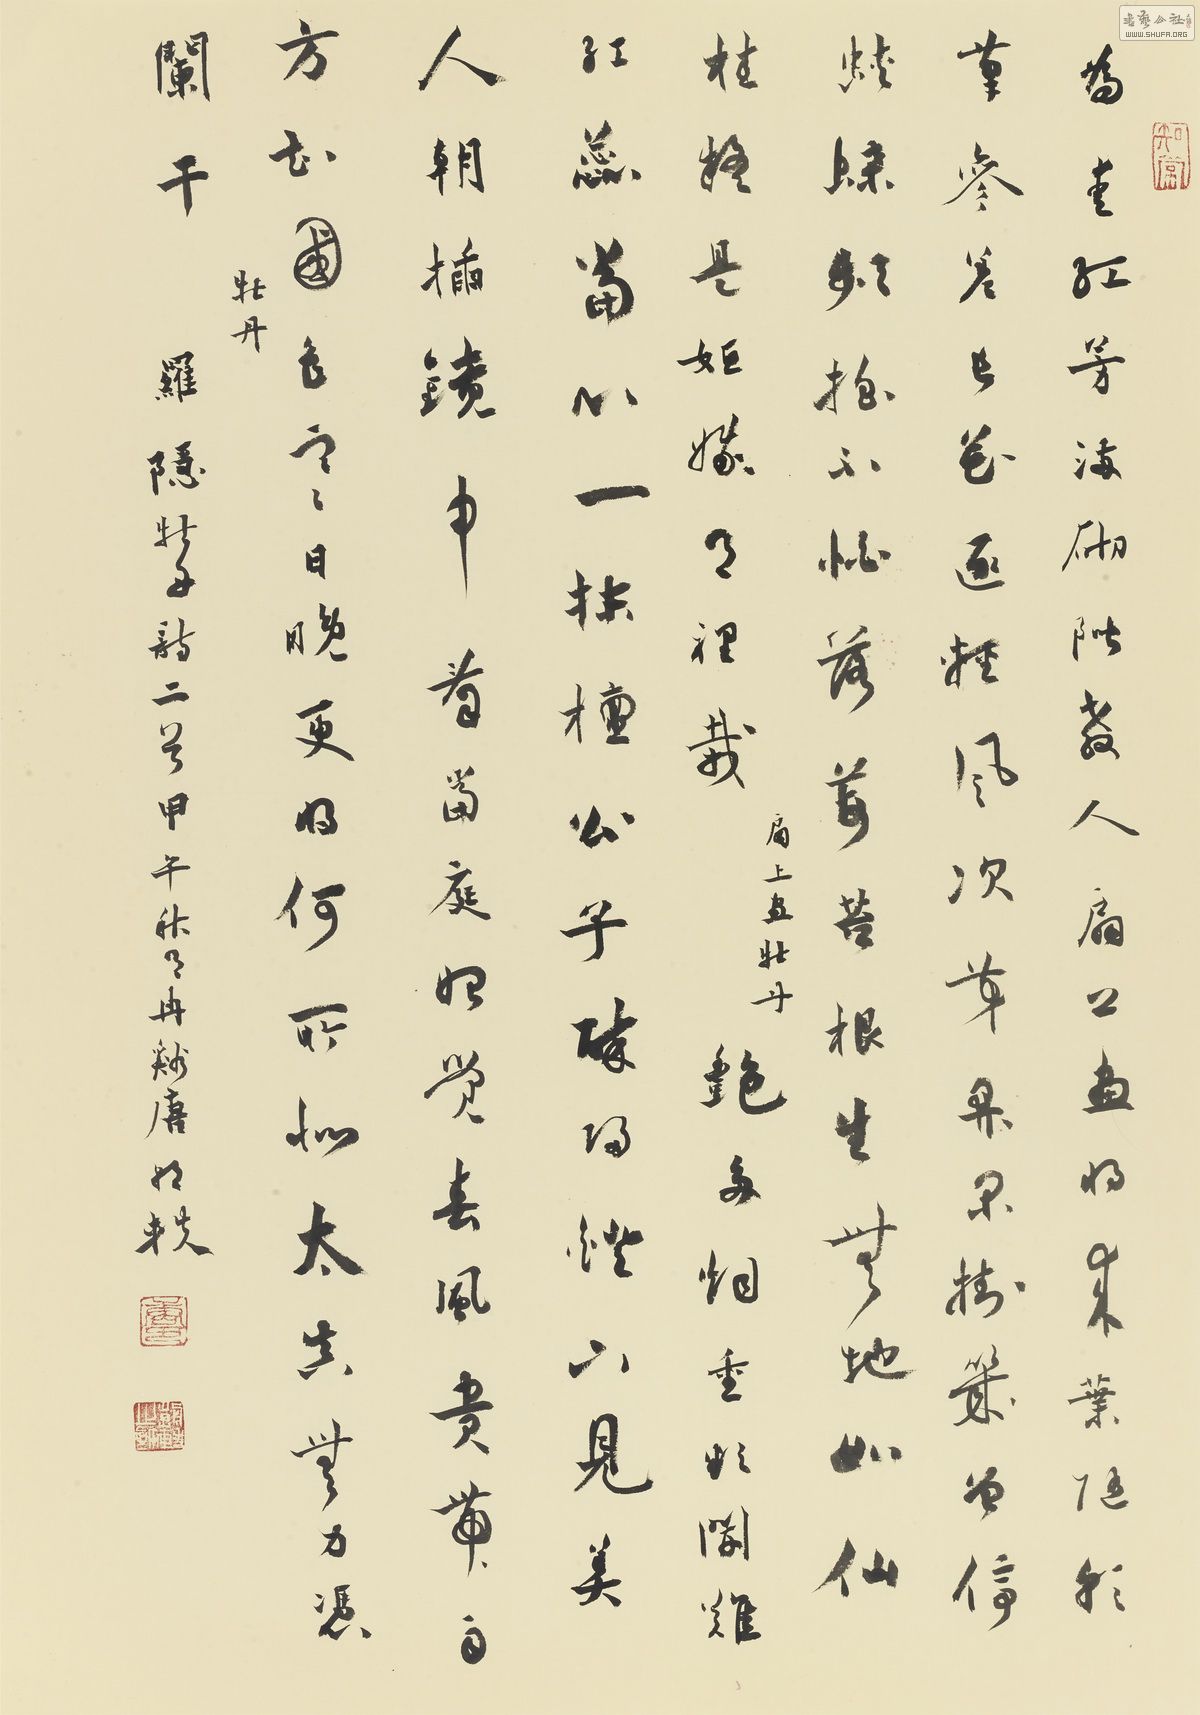 知常
為愛紅芳滿砌階教人扇上畫將來葉隨彩
筆參差長花逐輕風次第開閒掛幾曾停
蛺蝶頻搖不怕落莓苔根生無地如仙
桂疑是姮娥月裡栽 扇上畫牡丹 艷多烟重欲開難
紅蕊當心一抹檀公子醉歸燈下見美
人朝插鏡中看當庭始覺春風貴帶雨
方知國色寒日晚更將何所似太真無力憑
闌干 牡丹
羅隱牡丹詩二首甲午秋月冉谿唐朝軼
書藝公社
WWW.SHUFA.ORG